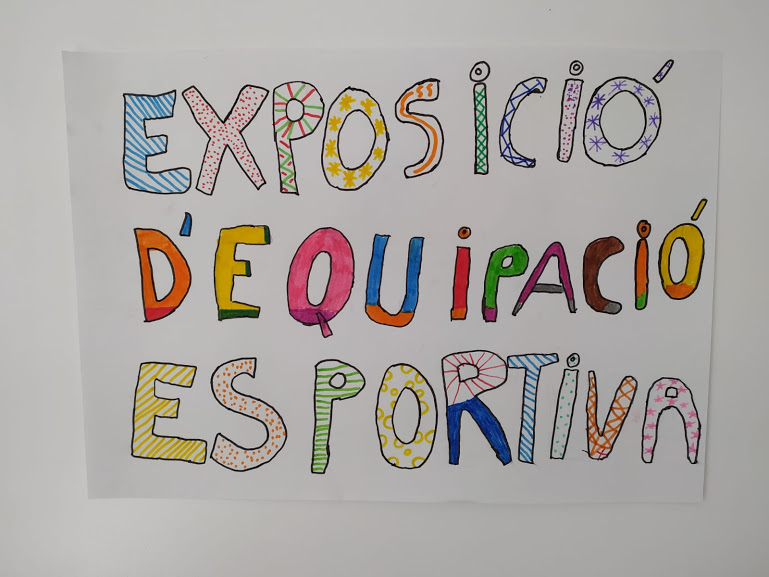 EXPOSiCiÓ
D'EQUiPACiÓ
ESPORTiVA